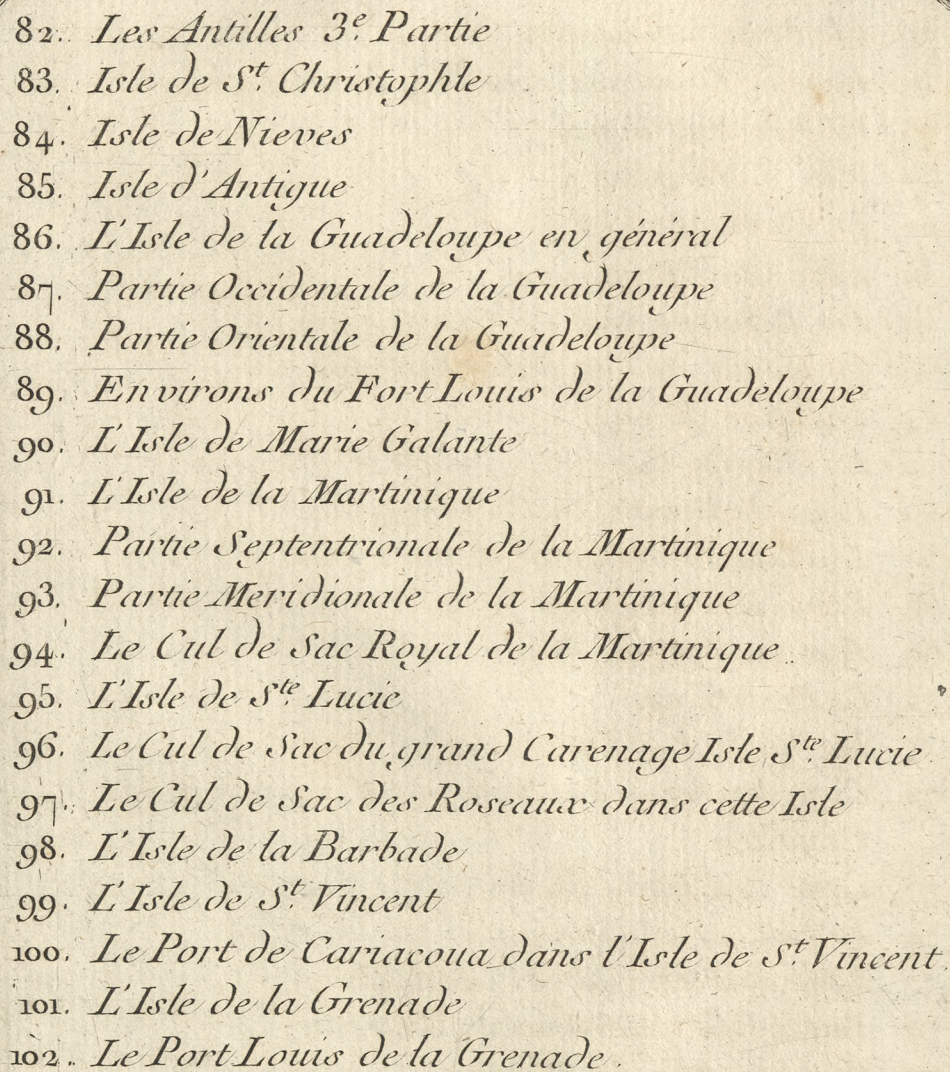 82. Les Antilles 3e. Partie
83. Isle de St. Christophle
84. Isle de Nieves
85. Isle d'Antigue
86. L'Isle de la Guadeloupe en général
87. Partie Occidentale de la Guadeloupe
88. Partie Orientale de la Guadeloupe
89. Environs du Fort Louis de la Guadeloupe
90. L'Isle de Marie Galante
91. L'Isle de la Martinique
92. Partie Septentrionale de la Martinique
93. Partie Meridionale de la Martinique
94. Le Cul de Sac Royal de la Martinique
95. L'Isle de Ste. Lucie
96. Le Cul de Sac du grand Carenage Isle Ste. Lucie
97. Le Cul de Sac des Roseaux dans cette Isle
98. L'Isle de la Barbade
99. L'Isle de St. Vincent
100. Le Port de Cariacoua dans l'Isle de St. Vincent.
101. L'Isle de la Grenade
102. Le Port Louis de la Grenade.